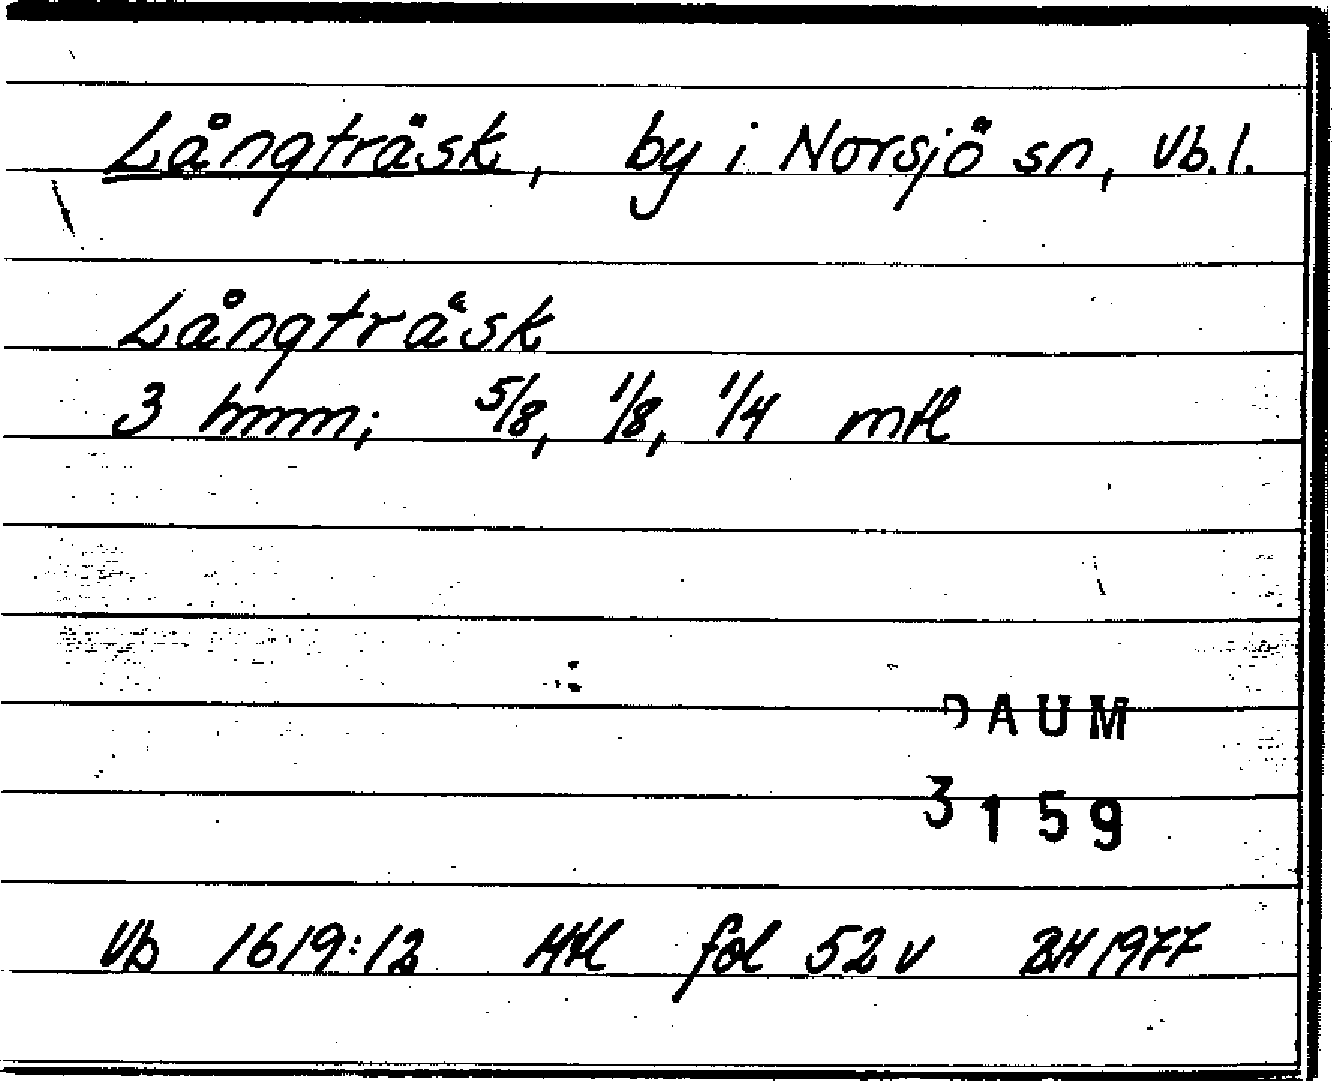 Långträsk, by i Norsjö sn, Vb.l.
Långträsk
3 hmm; 5/8, 1/8, 1/4 mtl
DAUM
3159
Vb 1619:12 Mtl fol 52 v BH 1977